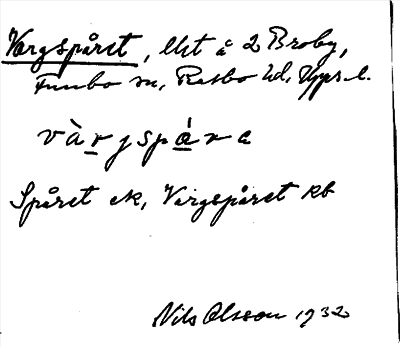 Vargspåret, lht å 2 Broby,
Funbo sn, Rasbo hd, Upps. l.
vàrjspá̱re
Spåret ek, Vargspåret kb
Nils Olsson 1932